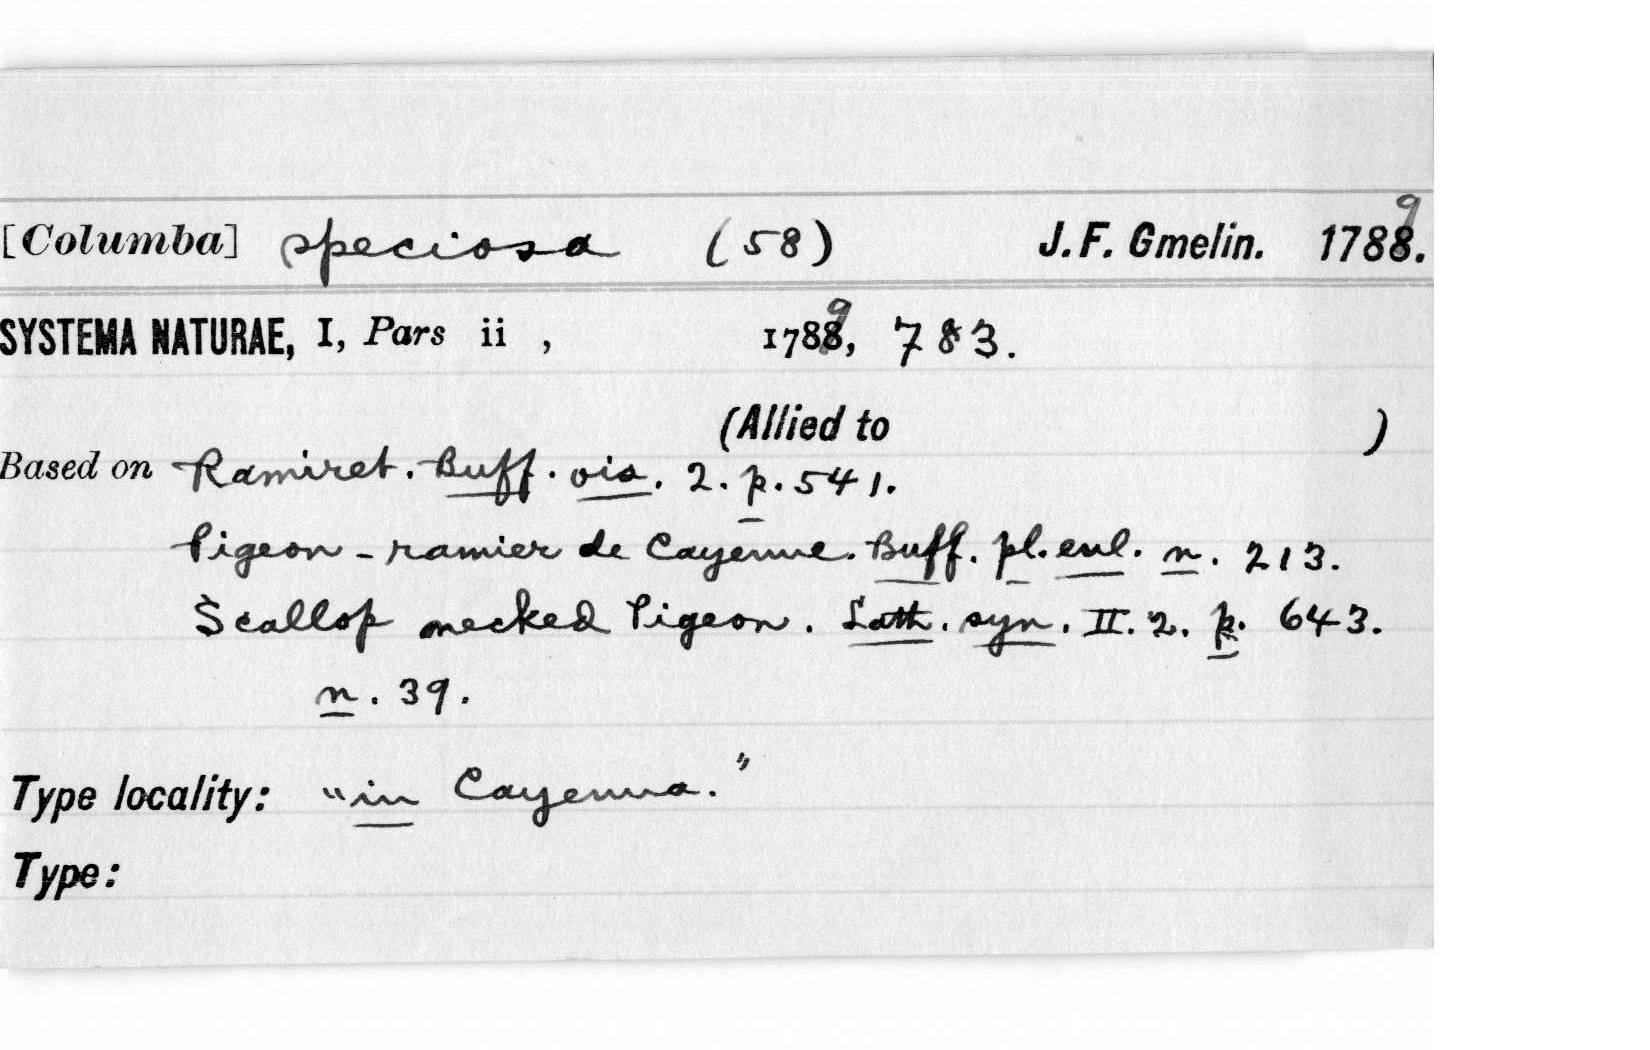 [Columba] speciosa (58) J. F. Gmelin. 1789.
SYSTEMA NATURAE, I, Pars ii , 1789, 783.
(Allied to )
Based on Ramiret. Buff. ois. 2. p. 541.
Pigeon-ramier de Cayenne. Buff. pl. enl. n. 213.
Scallop necked Pigeon. Lath. syn. II. 2. p. 643.
n. 39.
Type locality: "in Cayenna."
Type: